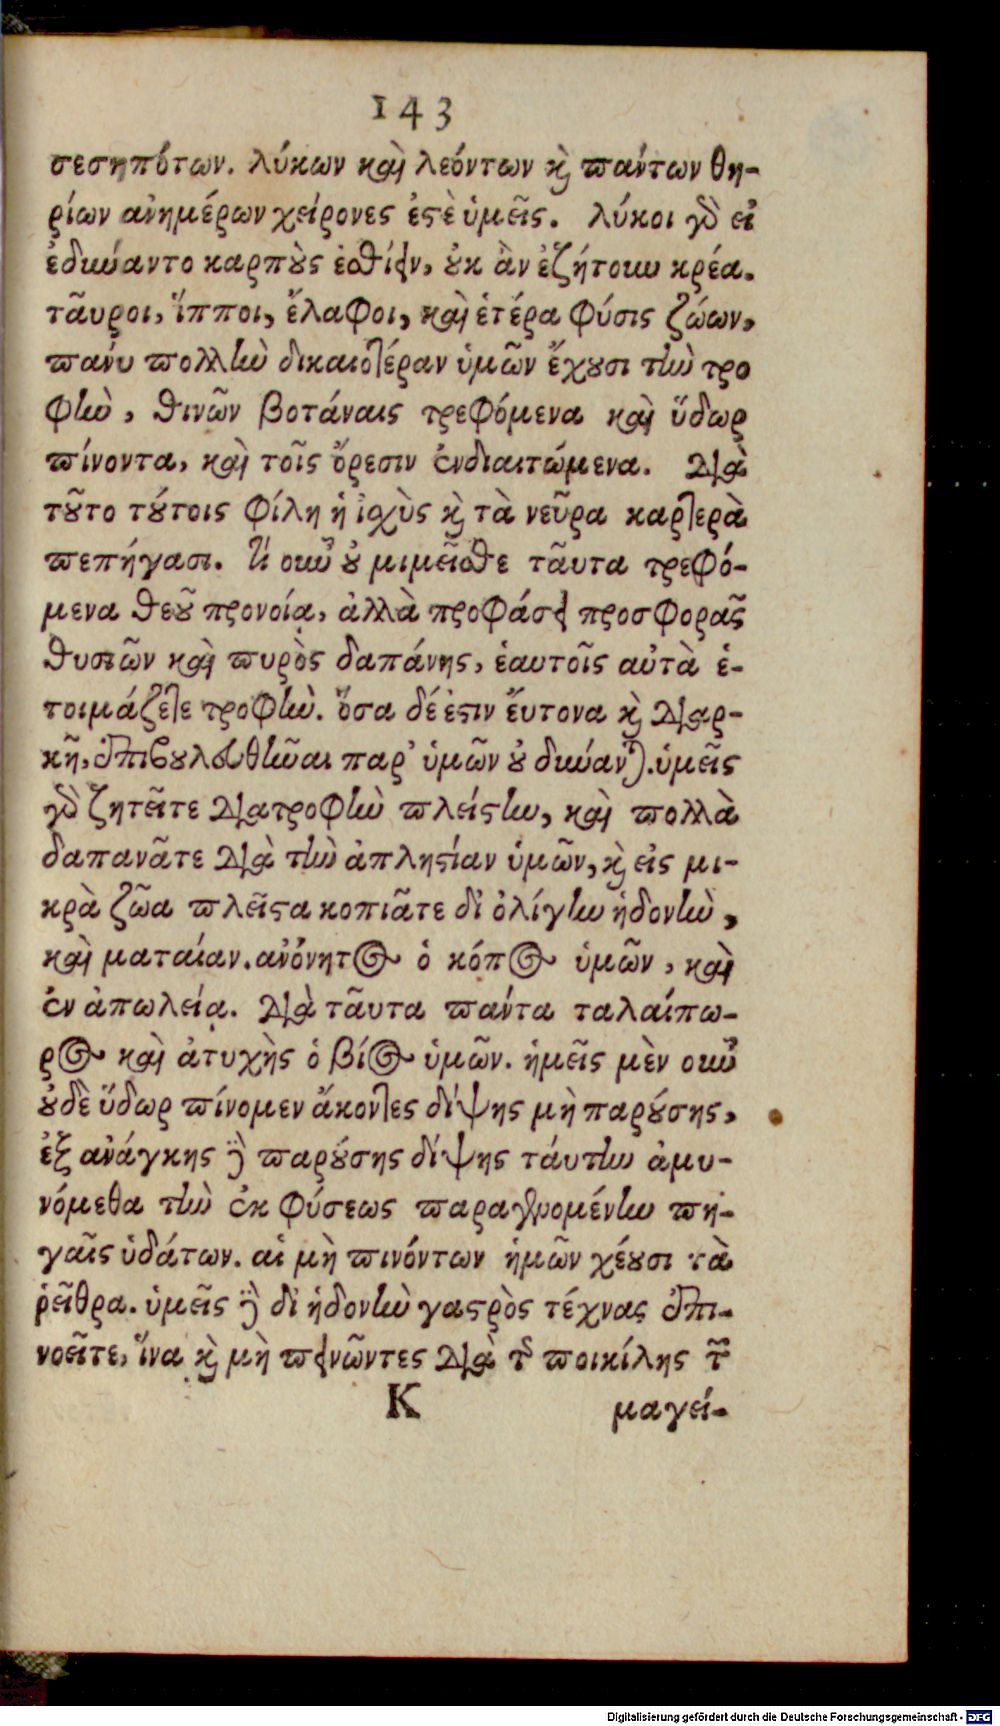 143
σεσηπότων. λύκων καὶ λεόντων κὶ πάντων θη-
ρίων ἀνημέρων χείρονες ἐστὲ ὑμεῖς. λύκοι γὸ εἰ
ἐδύναντο καρποὺς ἐσθίειν, οὐκ ἂν ἐζήτουν κρέα.
ταῦροι, ἵπποι, ἔλαφοι, καὶ ἑτέρα φύσις ζώων,
πάνυ πολλὴν δικαιοτέραν ὑμῶν ἔχουσι τὴν τρο
φὴν, θινῶν βοτάναις τρεφόμενα καὶ ὕδωρ
πίνοντα, καὶ τοῖς ὄρεσιν ἐνδιαιτώμενα. Διὰ
τοῦτο τούτοις φίλη ἡ ἰσχὺς κὶ τὰ νεῦρα καρτερὰ
πεπήγασι. τί οὖν οὐ μιμεῖσθε ταῦτα τρεφό-
μενα θεοῦ προνοίᾳ, ἀλλὰ προφάσει προσφορᾶς
θυσιῶν καὶ πυρὸς δαπάνης, ἑαυτοῖς αὐτὰ ἑ-
τοιμάζετε τροφὴν. ὅσα δέ ἐστιν ἔυτονα κὶ διαρ-
κῆ, ἐπιβουλευθῆναι παρ' ὑμῶν οὐ δύνανται. ὑμεῖς
γὸ ζητεῖτε διατροφὴν πλείστην, καὶ πολλὰ
δαπανᾶτε διὰ τὴν ἀπληστίαν ὑμῶν, κὶ εἰς μι-
κρὰ ζῶα πλεῖστα κοπιᾶτε δι' ὀλίγην ἡδονὴν,
καὶ ματαίαν. ἀνόνητος ὁ κόπος ὑμῶν, καὶ
ἐν ἀπωλείᾳ. Διὰ ταῦτα πάντα ταλαίπω-
ρος καὶ ἀτυχὴς ὁ βίος ὑμῶν. ἡμεῖς μὲν οὖν
οὐδὲ ὕδωρ πίνομεν ἄκοντες δίψης μὴ παρούσης,
ἐξ ἀνάγκης δὲ παρούσης δίψης ταύτην ἀμυ-
νόμεθα τὴν ἐκ φύσεως παραγινομένην πη-
γαῖς ὑδάτων. αἱ μὴ πινόντων ἡμῶν χέουσι τὰ
ῥεῖθρα. ὑμεῖς δὲ δι' ἡδονὴν γαστρὸς τέχνας ἐπι-
νοεῖτε, ἵνα κὶ μὴ πεινῶντες διὰ τῆς ποικίλης τῶν
K μαγεί-
Digitalisierung gefördert durch die Deutsche Forschungsgemeinschaft - DFG